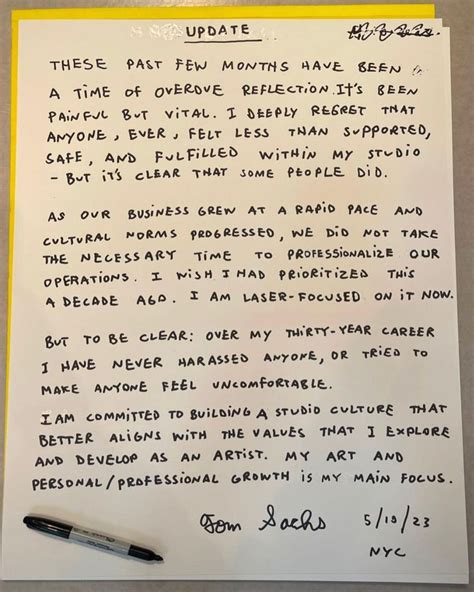 UPDATE
THESE PAST FEW MONTHS HAVE BEEN
A TIME OF OVERDUE REFLECTION. IT'S BEEN
PAINFUL BUT VITAL. I DEEPLY REGRET THAT
ANYONE, EVER, FELT LESS THAN SUPPORTED,
SAFE, AND FULFILLED WITHIN MY STUDIO
- BUT IT'S CLEAR THAT SOME PEOPLE DID.
AS OUR BUSINESS GREW AT A RAPID PACE AND
CULTURAL NORMS PROGRESSED, WE DID NOT TAKE
THE NECESSARY TIME TO PROFESSIONALIZE OUR
OPERATIONS. I WISH I HAD PRIORITIZED THIS
A DECADE AGO. I AM LASER-FOCUSED ON IT NOW.
BUT TO BE CLEAR: OVER MY THIRTY-YEAR CAREER
I HAVE NEVER HARASSED ANYONE, OR TRIED TO
MAKE ANYONE FEEL UNCOMFORTABLE.
I AM COMMITTED TO BUILDING A STUDIO CULTURE THAT
BETTER ALIGNS WITH THE VALUES THAT I EXPLORE
AND DEVELOP AS AN ARTIST. MY ART AND
PERSONAL/PROFESSIONAL GROWTH IS MY MAIN FOCUS.
Tom Sachs 5/10/23
NYC